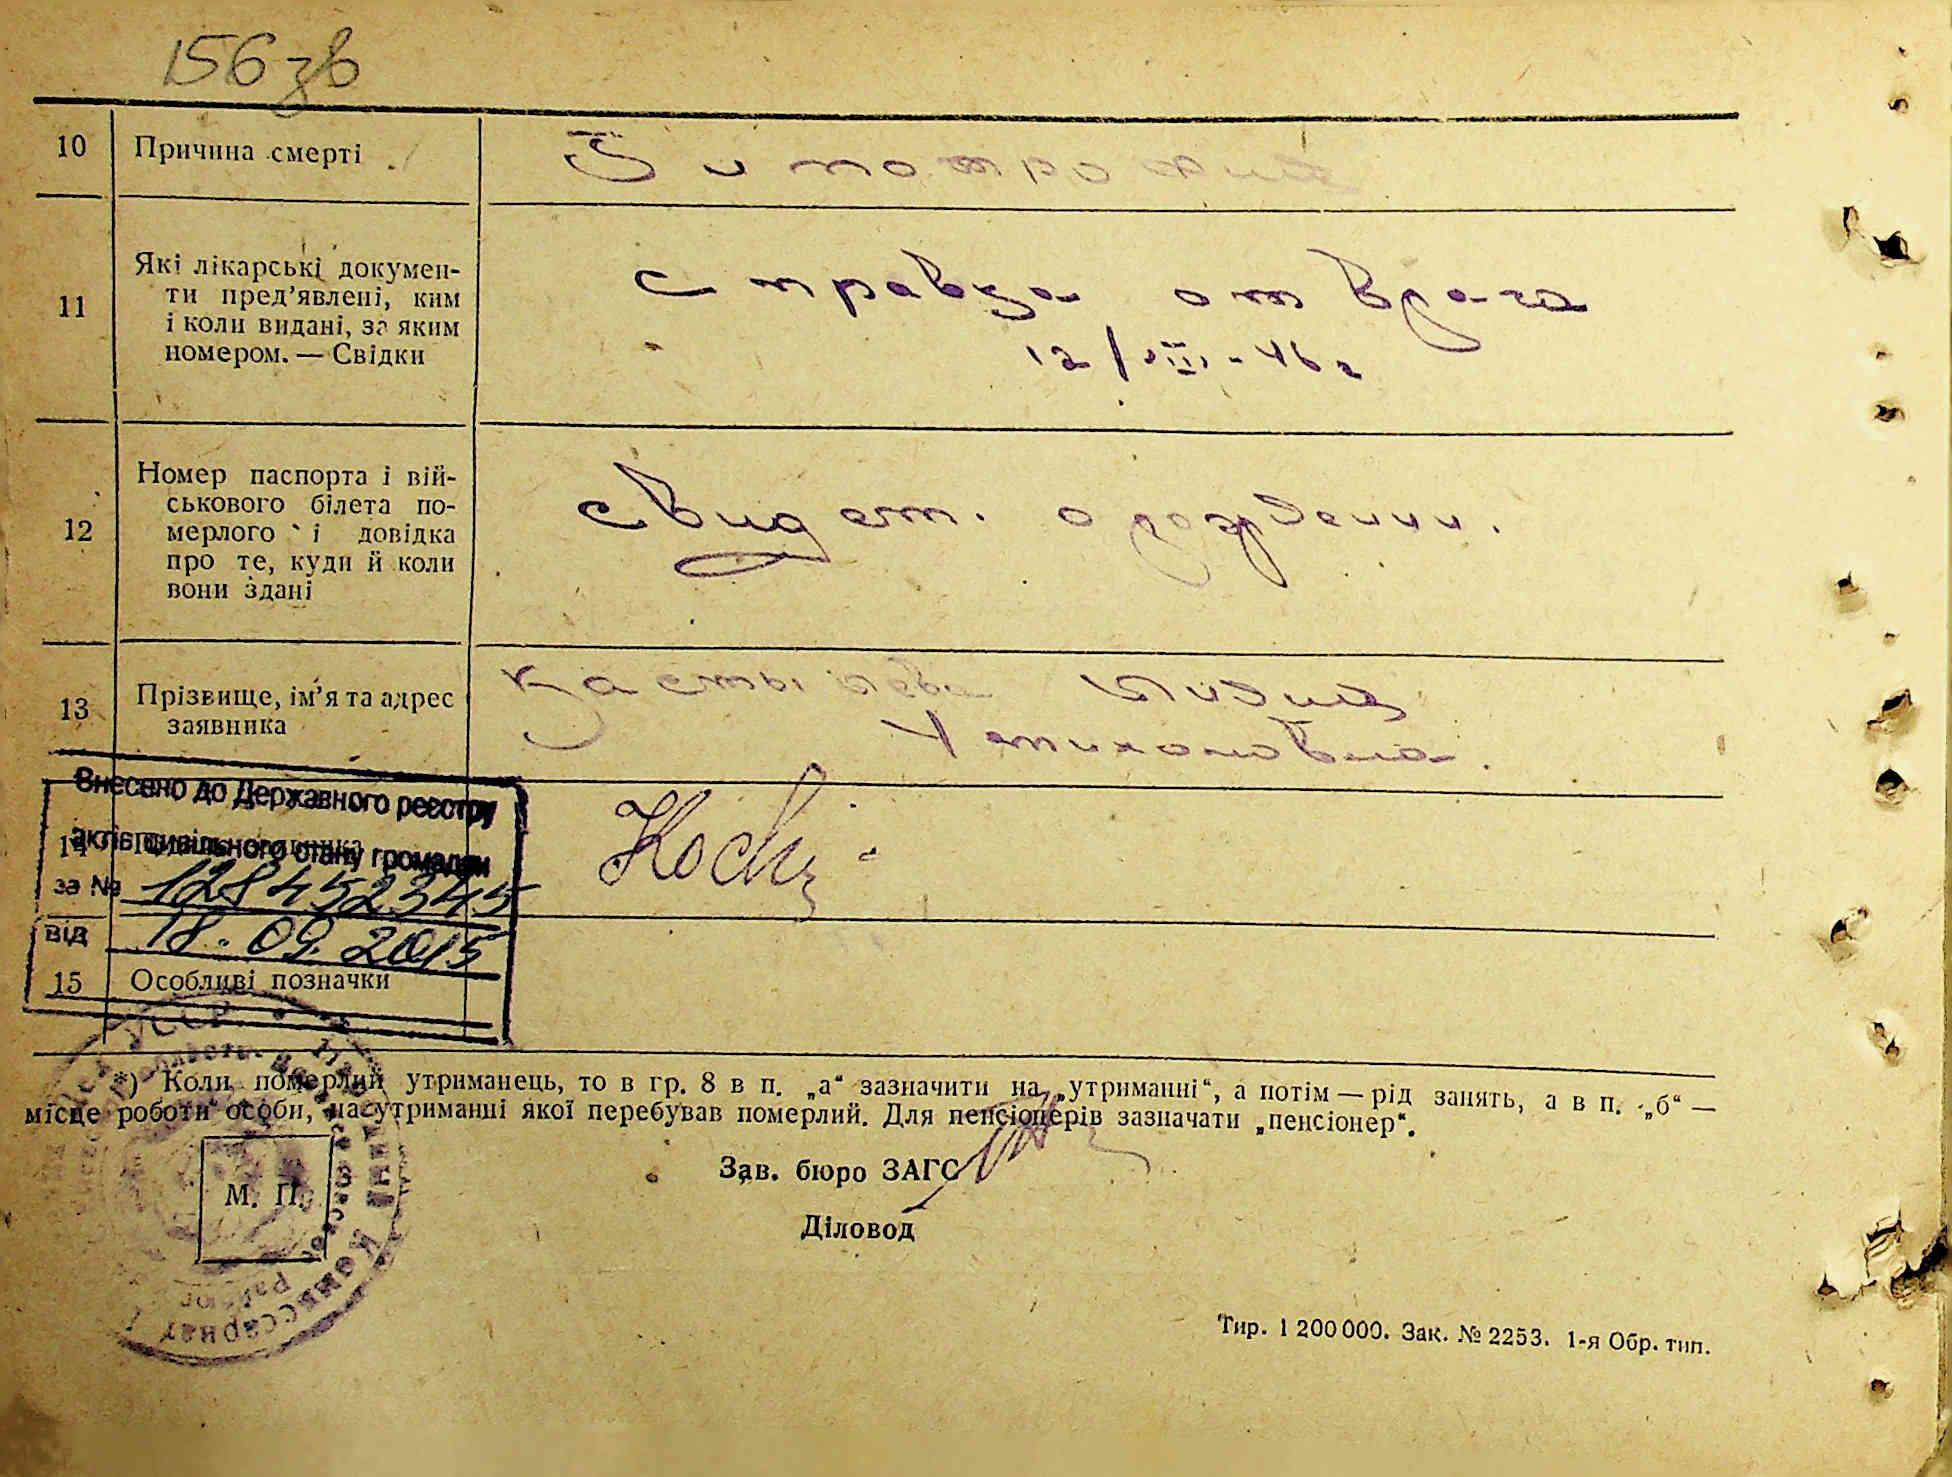 156 зв
10 Причина смерті
Гипотрофия
11 Які лікарські докумен-
ти пред’явлені, ким
і коли видані, за яким
номером. — Свідки
справка от врача
12/VIII-46 г
12 Номер паспорта і вій-
ськового білета по-
мерлого і довідка
про те, куди й коли
вони здані
свидет. о рождении.
13 Прізвище, ім’я та адрес
заявника
Лидия
Внесено до Державного реєстру
актів цивільного стану громадян
14
за № 128452345
від 18.09.2015
15 Особливі позначки
*) Коли померлий утриманець, то в гр. 8 в п. „а“ зазначити на „утриманні“, а потім — рід занять, а в п. „б“ —
місце роботи особи, на утриманні якої перебував померлий. Для пенсіонерів зазначати „пенсіонер“.
Зав. бюро ЗАГС
М. П.
Діловод
Тир. 1 200 000. Зак. № 2253. 1-я Обр. тип.